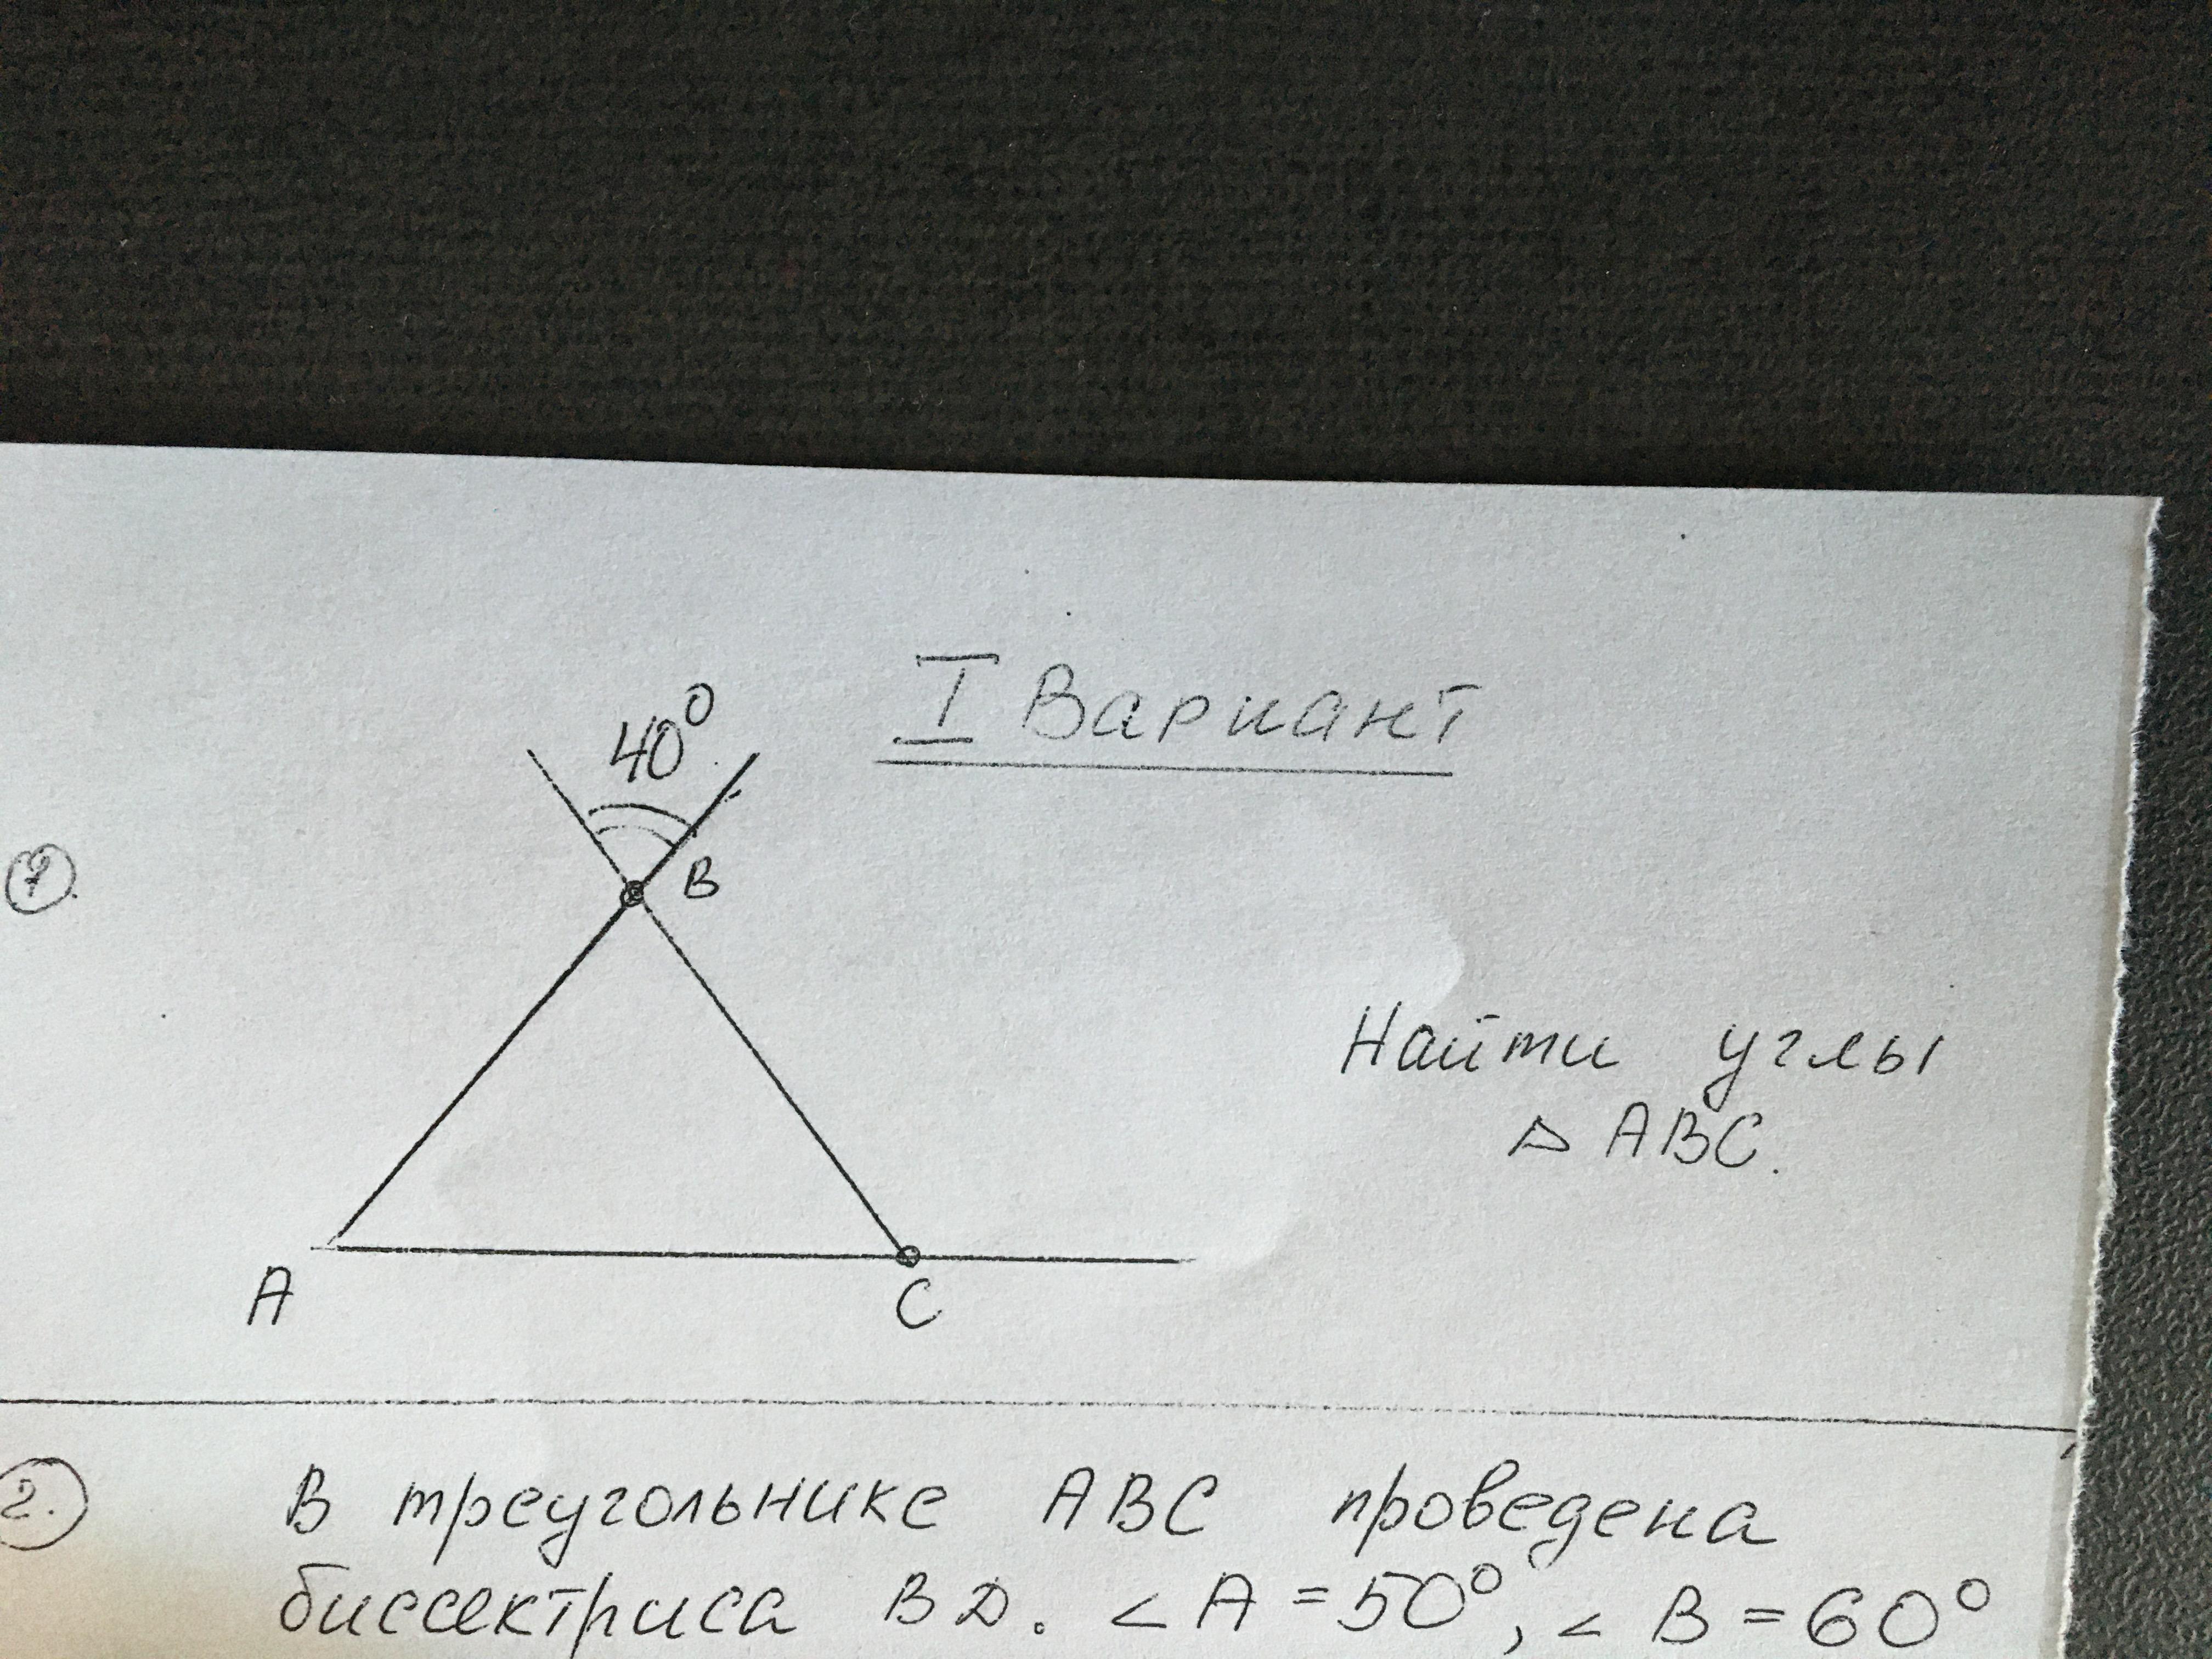 I Вариант
40°
1.
B
Найти углы
△ ABC.
A
C
2. В треугольнике ABC проведена
биссектриса BD. ∠A = 50°, ∠B = 60°